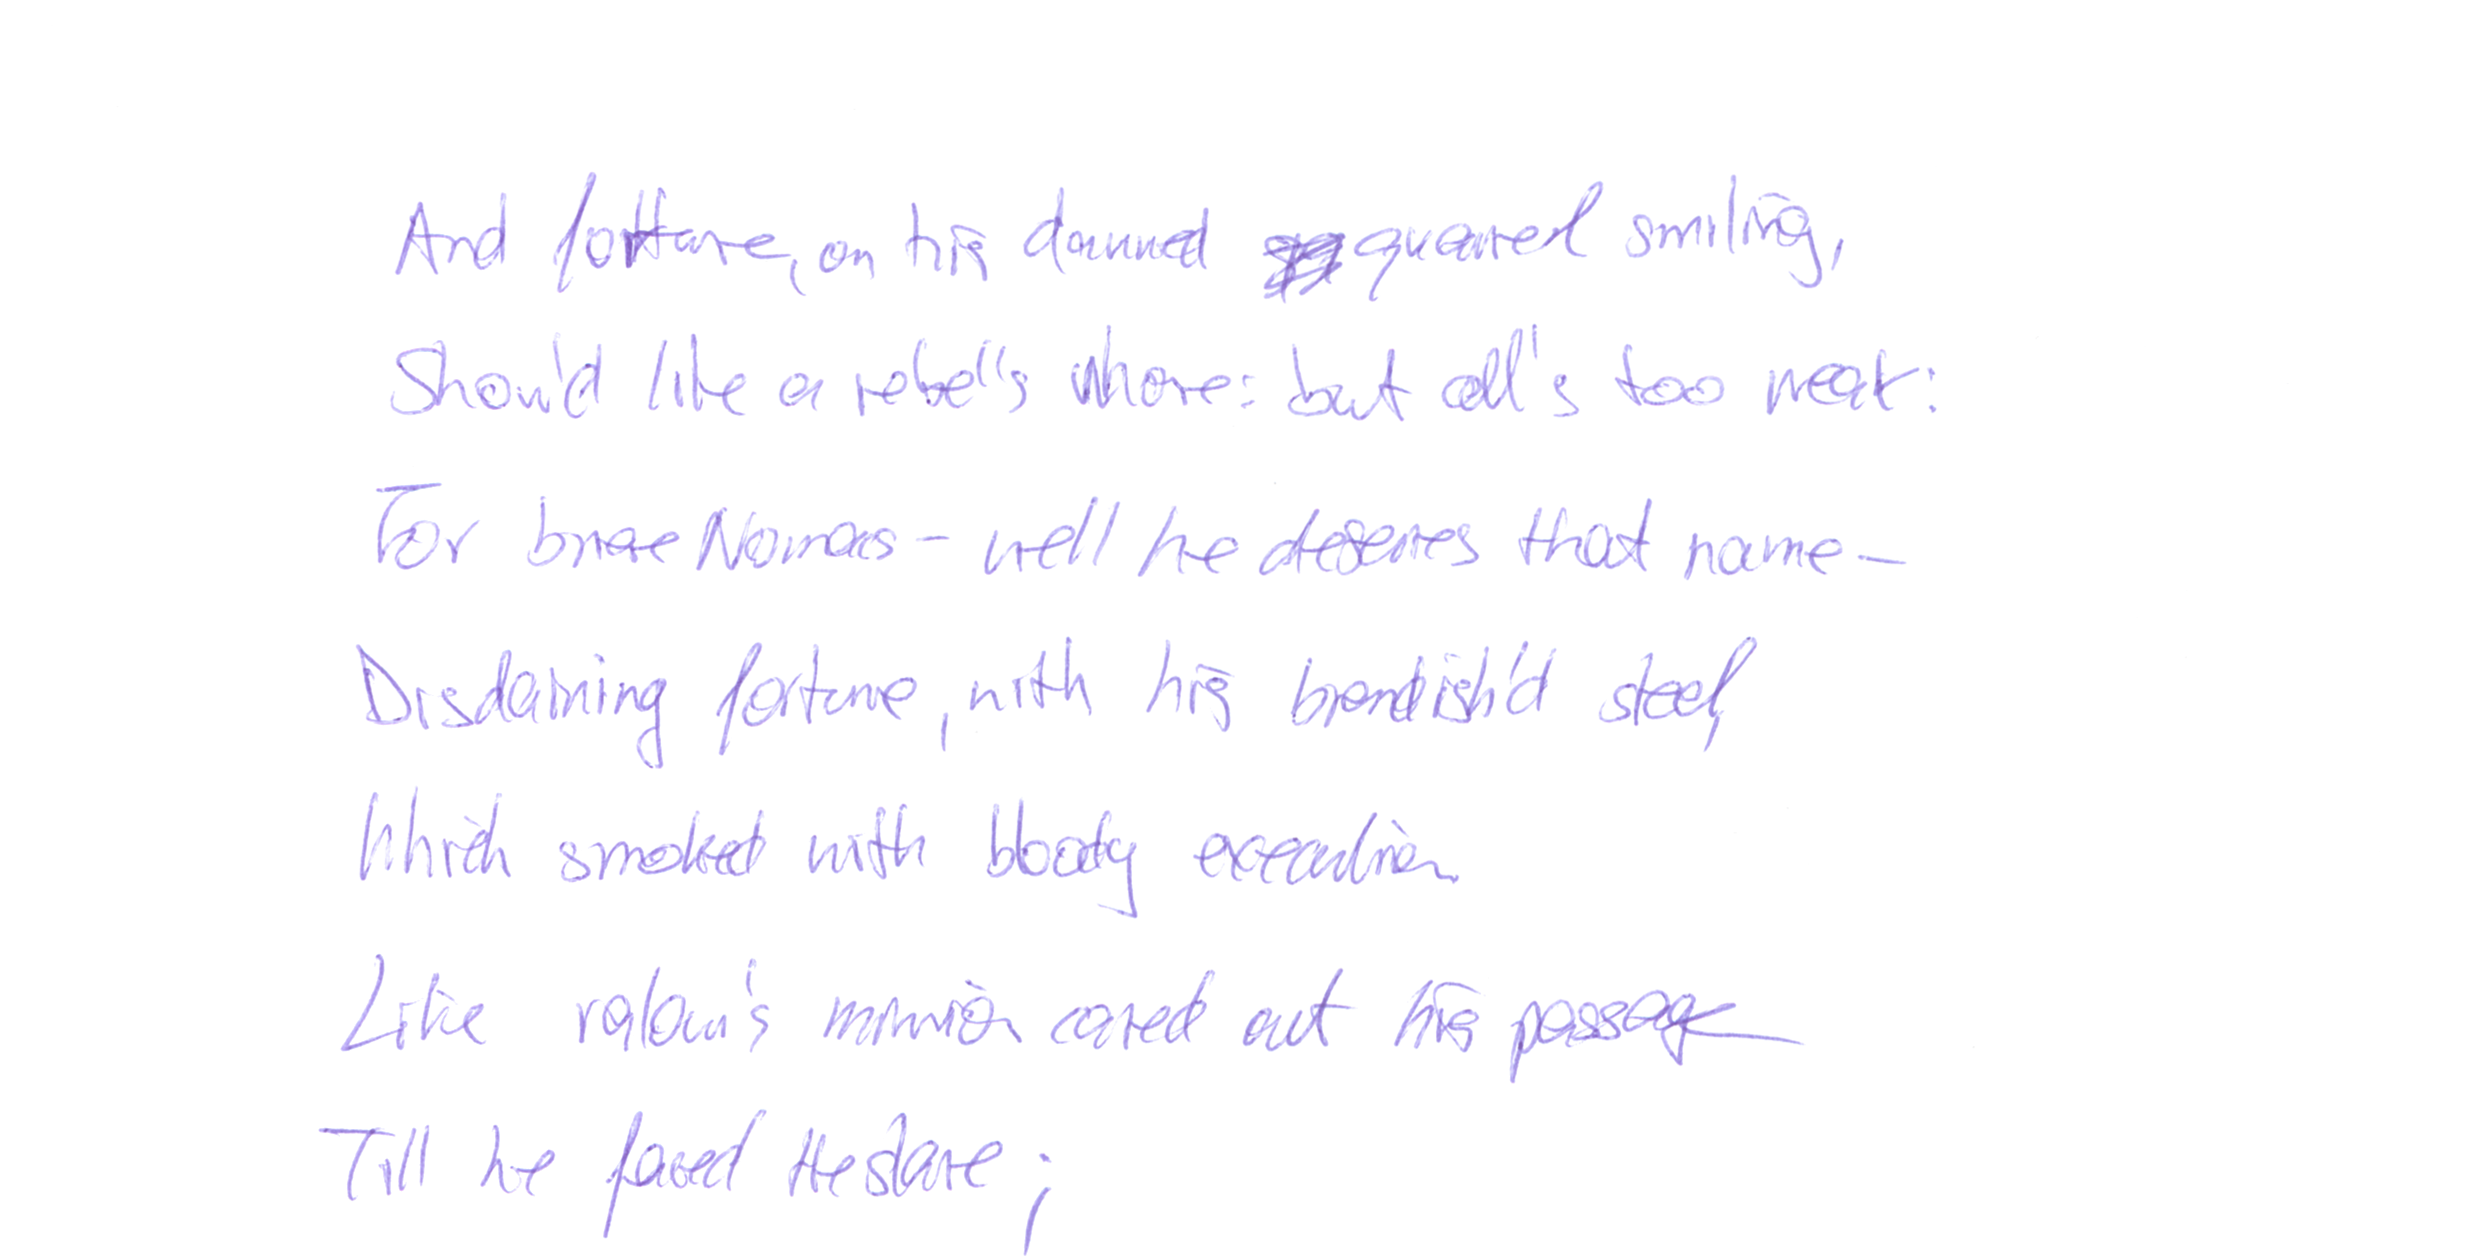 And fortune, on his damned quarrel smiling,
Show'd like a rebel's whore: but all's too weak:
For brave - well he deserves that name -
Disdaining fortune, with his brandish'd steel,
Which smoked with bloody execution
Like valour's minion carved out his passage
Till he faced the slave;